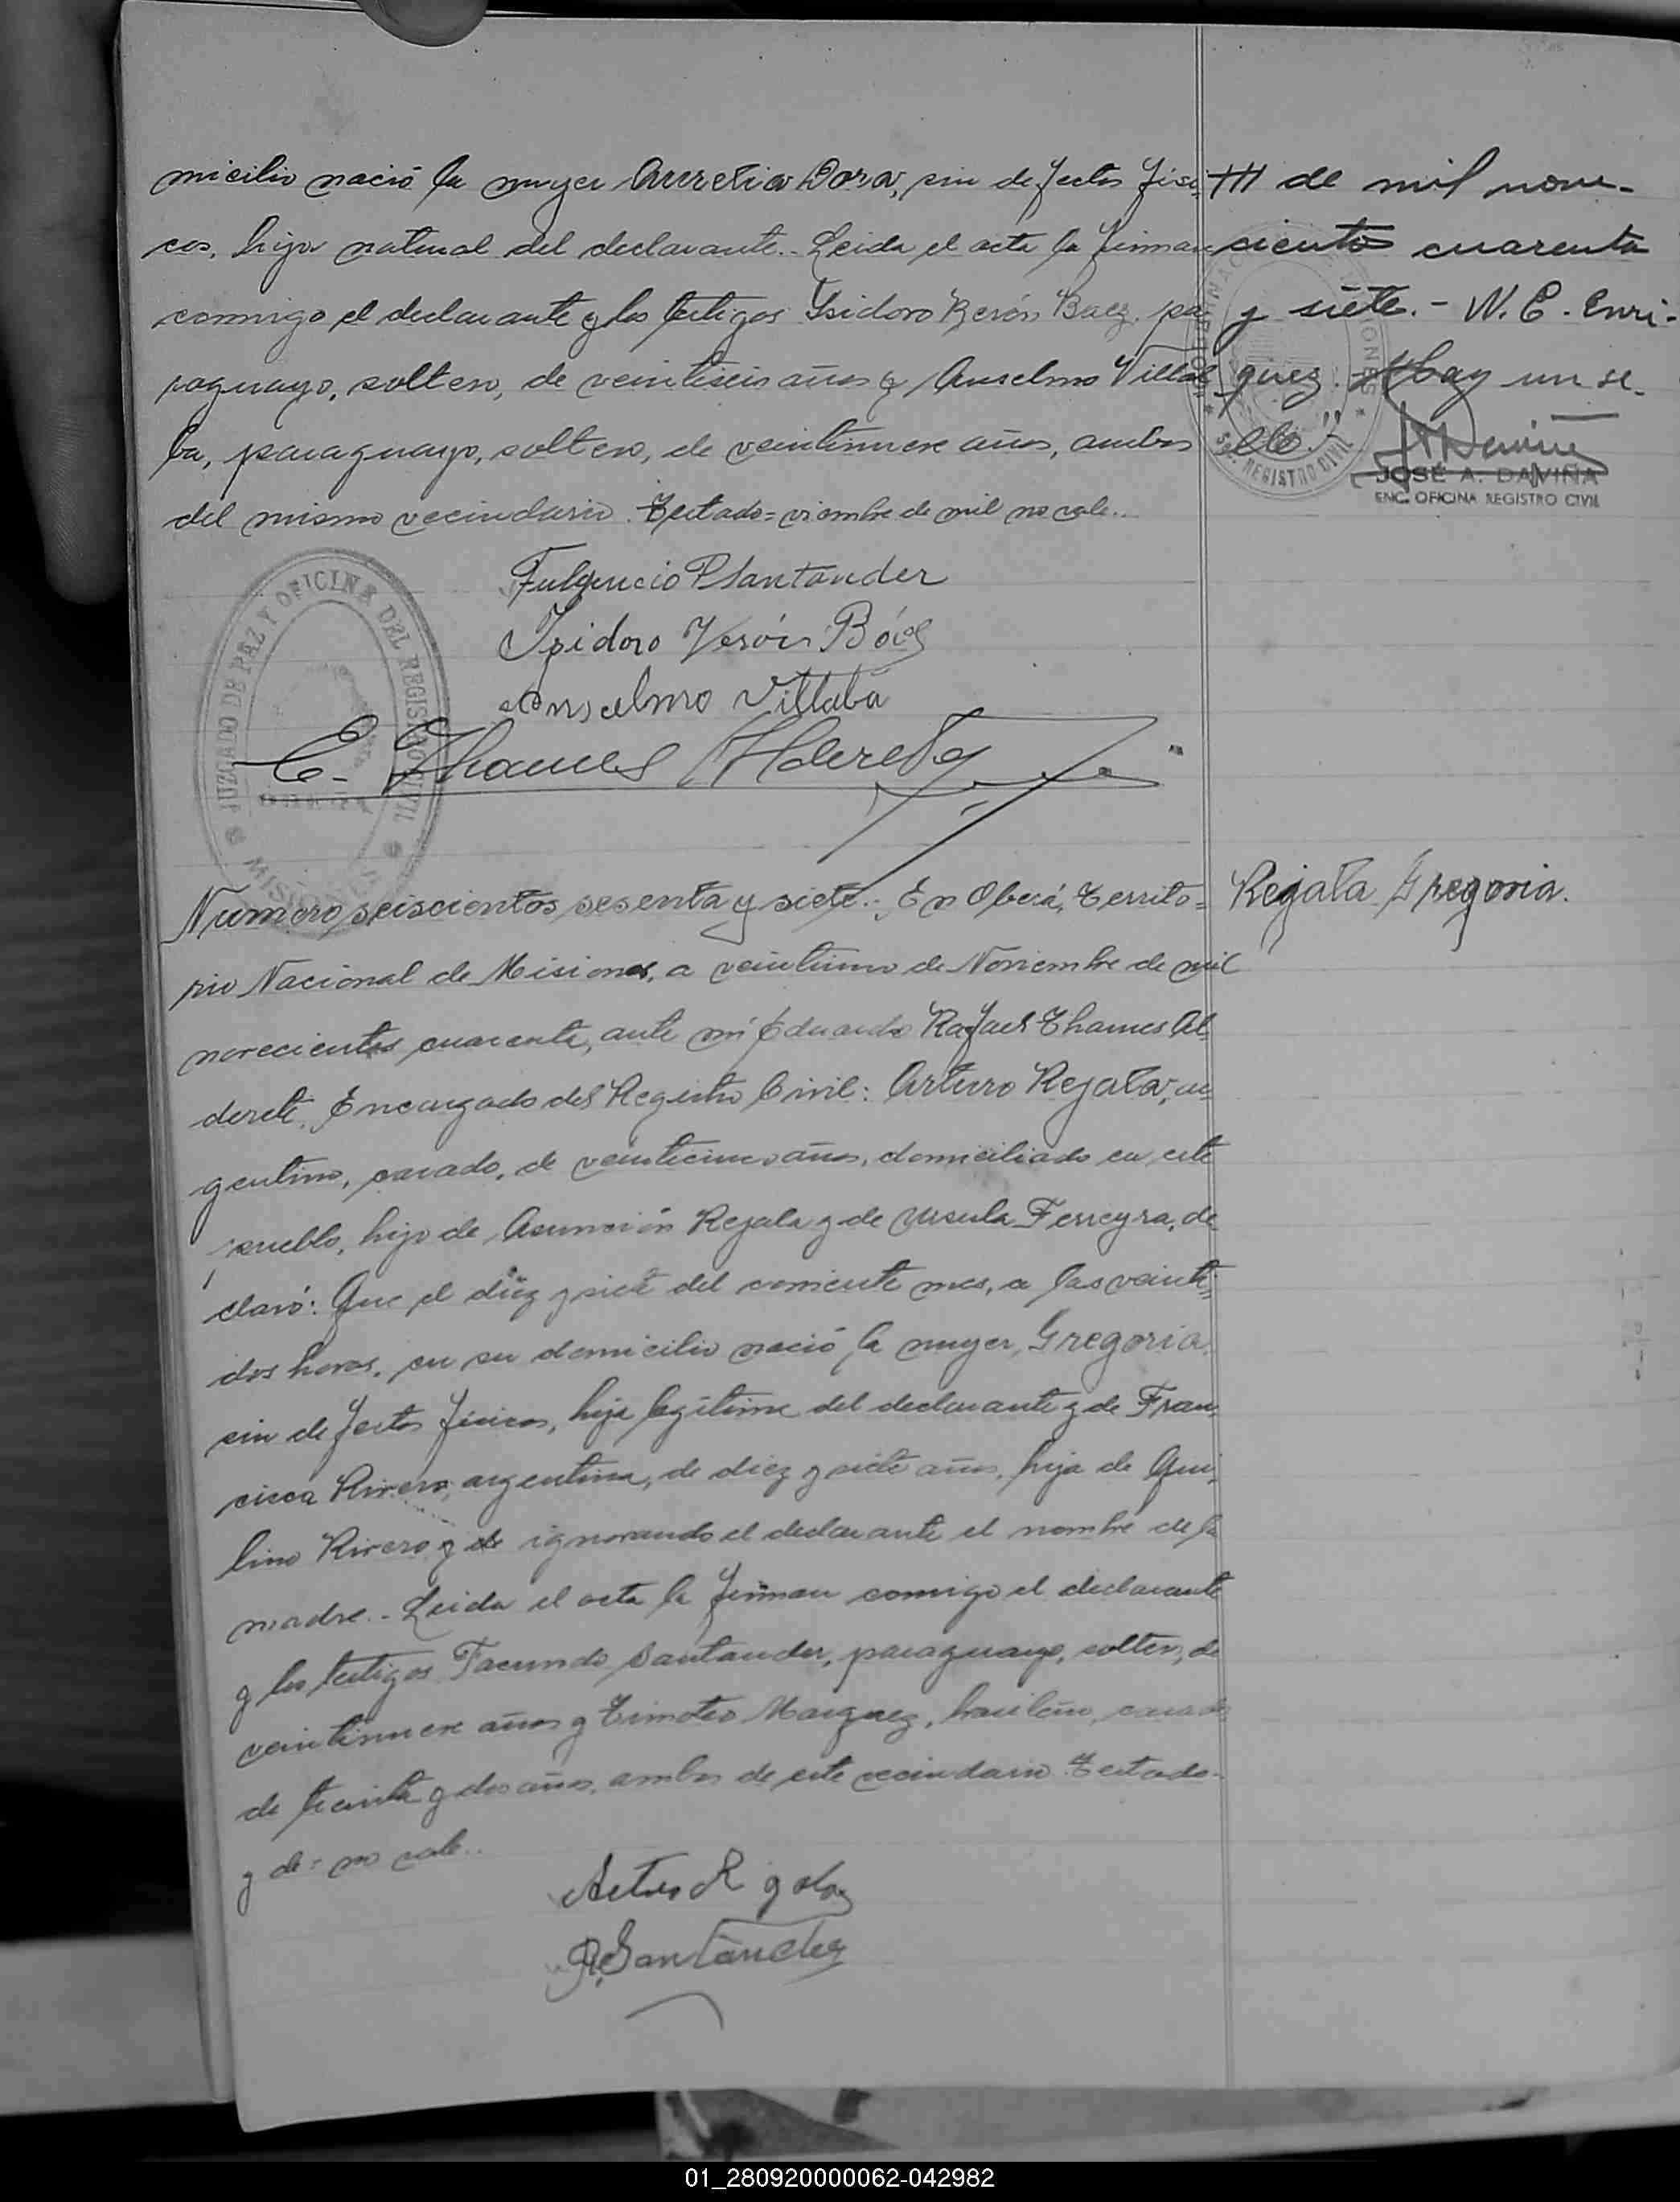 micilio nació la mujer Aurelia Dora, sin defectos físi-
cos, hija natural del declarante.- Leida el acta la firman
conmigo el declarante y los testigos Isidoro Verón Baez, pa-
raguayo, soltero, de veintiseis años y Anselmo Villal-
ba, paraguayo, soltero, de veintinueve años, ambos
del mismo vecindario. Testado=viembre de mil no vale..
III de mil nove-
cientos cuarenta
y siete.- N. E. Enri-
quez. Hay un se-
llo."
JOSÉ A. DAVIÑA
ENC. OFICINA REGISTRO CIVIL
SEC. REGISTRO CIVIL
Fulgencio P Santander
Isidoro Verón Báez
Anselmo Villalba
E. Thames Alderete
JUZGADO DE PAZ Y OFICINA DEL REGISTRO CIVIL
MISIONES
Numero seiscientos sesenta y siete.- En Oberá, Territo=
rio Nacional de Misiones, a veintiuno de Noviembre de mil
novecientos cuarenta, ante mí Eduardo Rafael Thames Al-
derete, Encargado del Registro Civil: Arturo Regala, ar-
gentino, casado, de veinticinco años, domiciliado en este
pueblo, hijo de Asunción Regala y de Ursula Ferreyra, de-
claró: Que el diez y siete del corriente mes, a las veinti-
dos horas, en su domicilio nació la mujer, Gregoria,
sin defectos físicos, hija legítima del declarante y de Fran-
cisca Rivero, argentina, de diez y siete años, hija de Qui-
lino Rivero y de ignorando el declarante el nombre de la
madre.- Leida el acta la firman conmigo el declarante
y los testigos Facundo Santander, paraguayo, soltero, de
veintinueve años y Timoteo Marquez, brasileño, casado,
de treinta y dos años, ambos de este vecindario. Testado-
y de= no vale..
Regala Gregoria.
Arturo Rigola
Santander
01_280920000062-042982